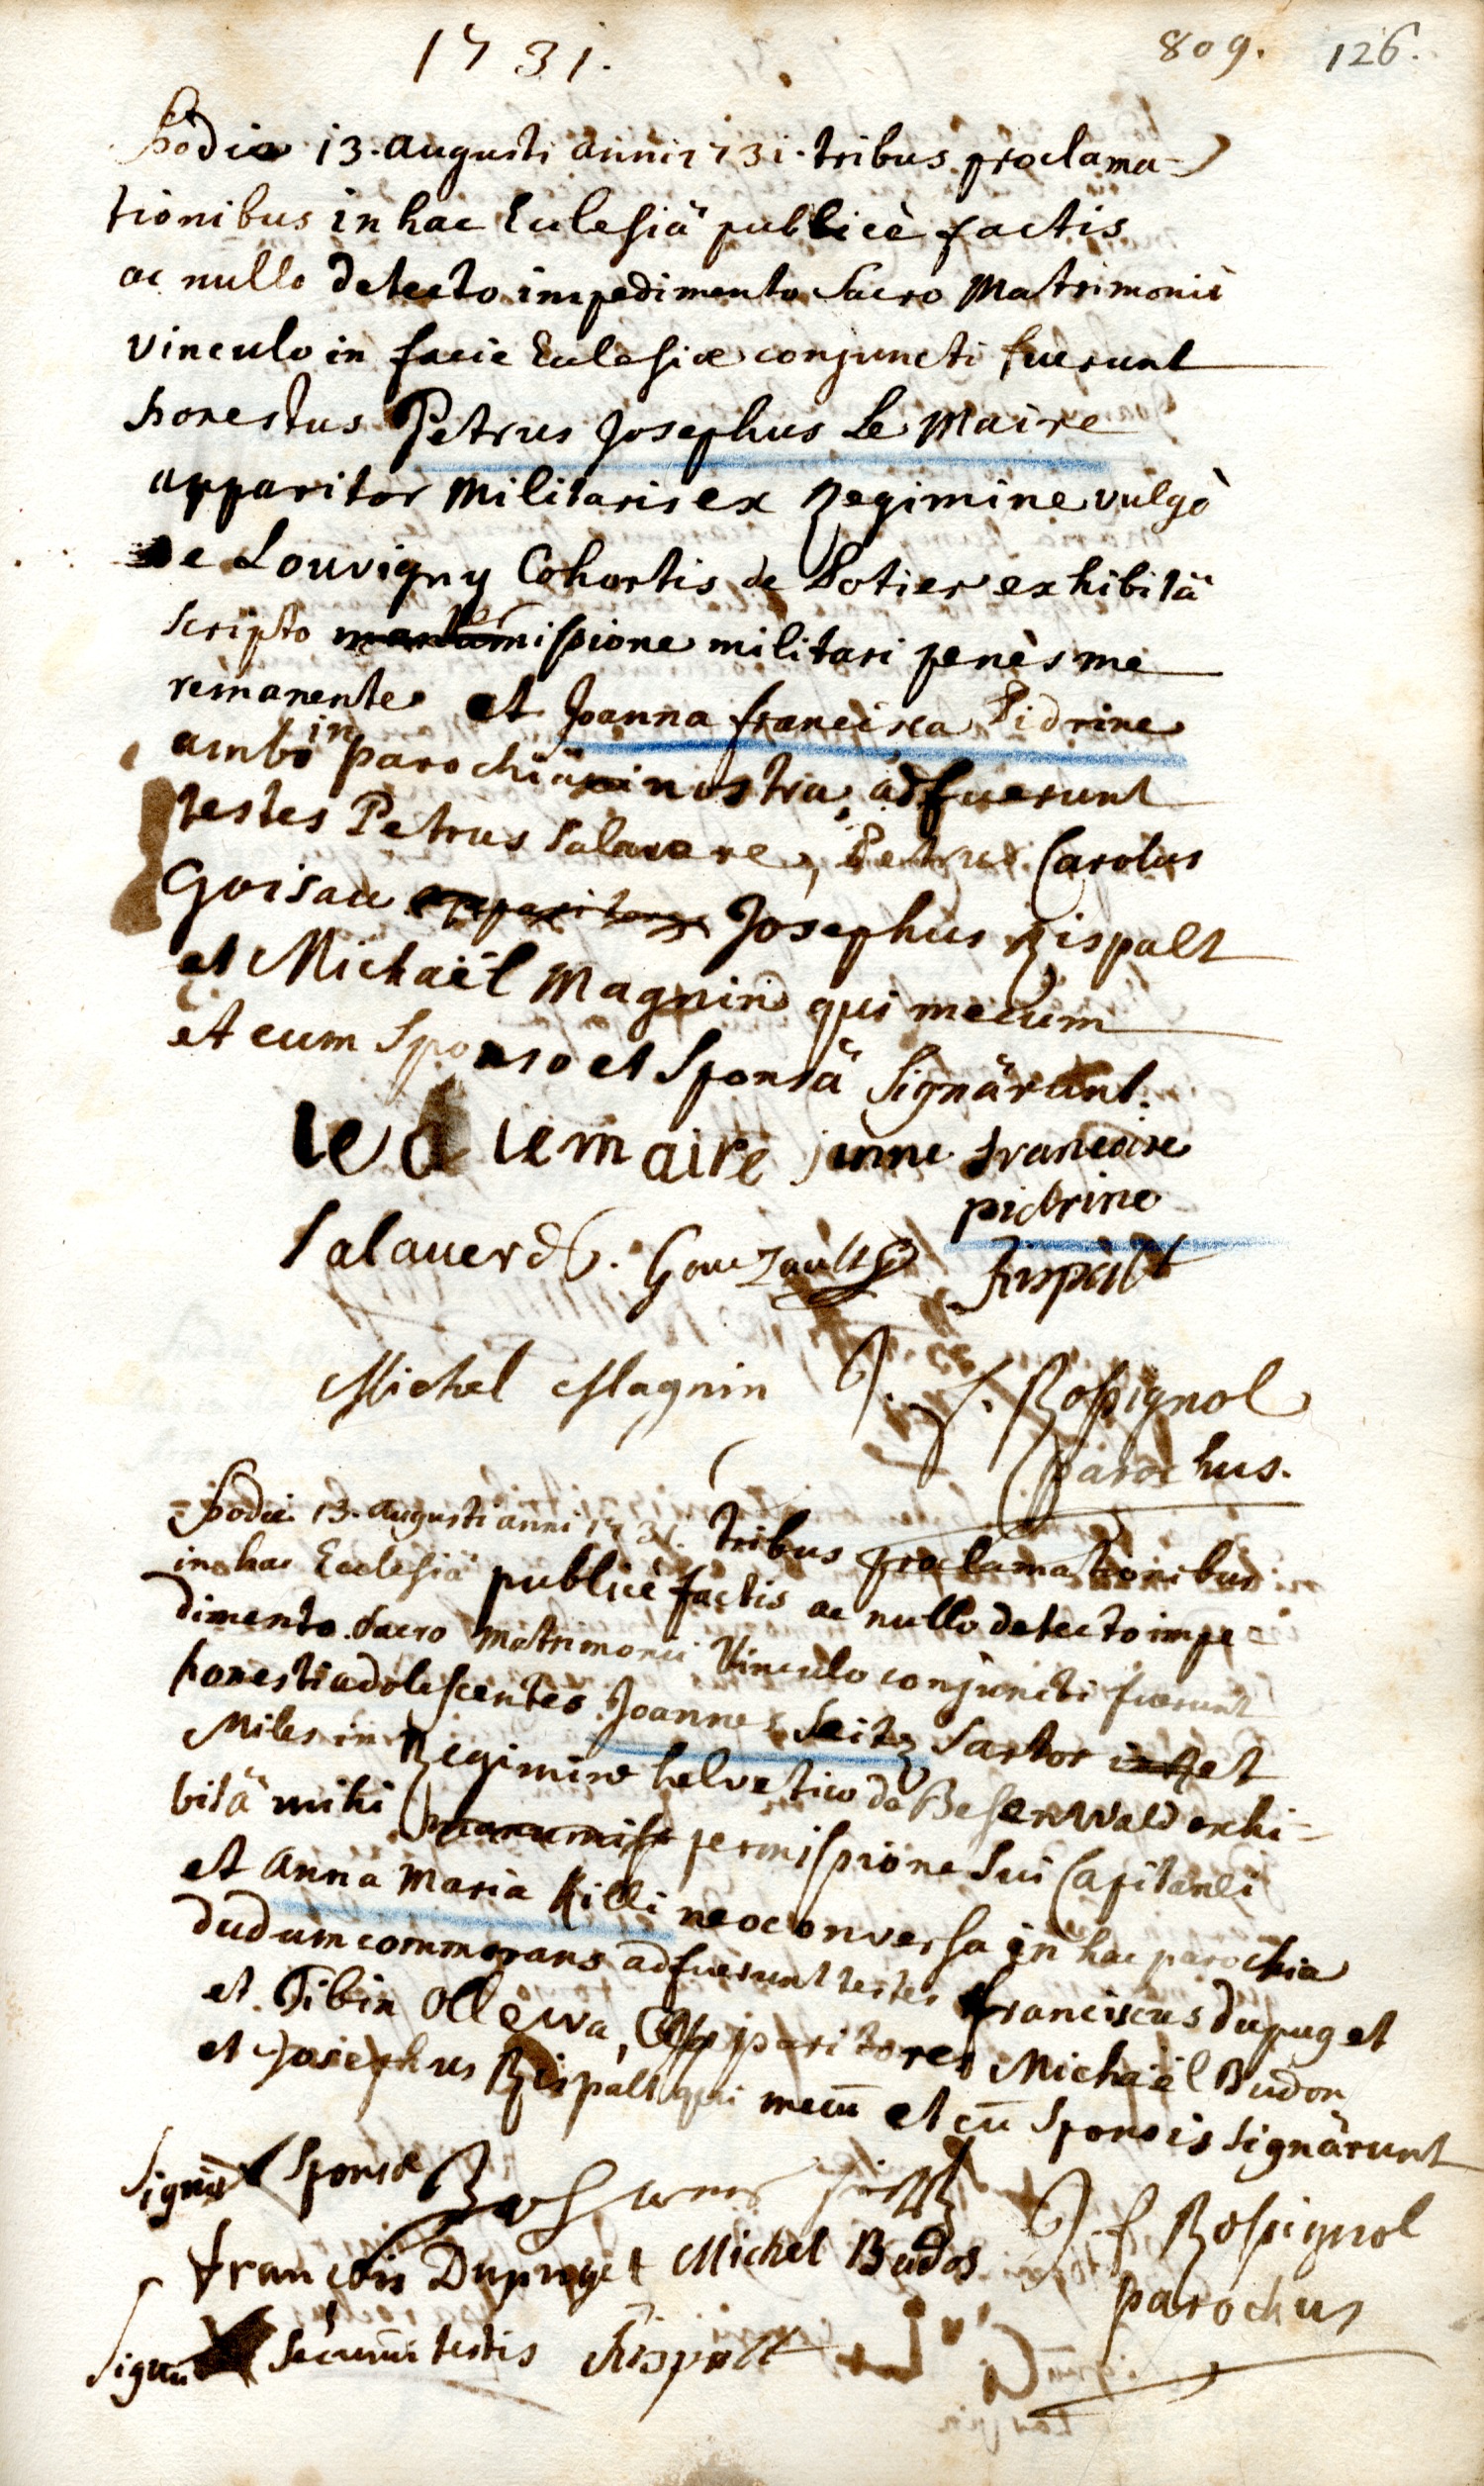 1731.
809. 126.
hodie 13. augusti anni 1731. tribus proclama-
tionibus in hac Eclesiâ publicè factis
ac nullo detecto impedimento sacro Matrimonii
vinculo in facie Eclesiæ conjuncti fuerunt
honestus Petrus Josephus Le Maire
apparitor militaris ex Regimine vulgò
de Louvigny Cohortis de Potier exhibitâ
scripto permissione militari penès me
remanente et Joanna francisca Pidrine
ambo in parochiâ nostra, adfuerunt
testes Petrus Salavere, Petrus Carolus
Goisau apparitores Josephus Rispalt
et Michaël Magnin qui mecum
et cum Sponso et Sponsâ Signârunt.
lemaire jenne francoise
pidrine
Salauerd. Gouzault Rispalt
Michel Magnin J. f. Rossignol
parochus.
hodie 13. augusti anni 1731. tribus proclamationibus
in hac Ecclesiâ publicè factis ac nullo detecto impe
dimento sacro matrimonii Vinculo conjuncti fuerunt
honesti adolescentes Joannes Seitz Sartor et
Miles in Regimine helvetico de Besenwald exhi-
bitâ mihi permissione sui Capitanei
et anna Maria Killi neoconversa in hac parochia
dudum commorans adfuerunt testes franciscus dupuget
et Tibin Ollewa, Apparitores Michaël Budon
et Josephus Rispalt qui mecū et cū Sponsis signârunt
Signū Sponsæ J. f. Rossignol
francois Dupuget Michel Budos parochus
Signū secundi testis Rispalt